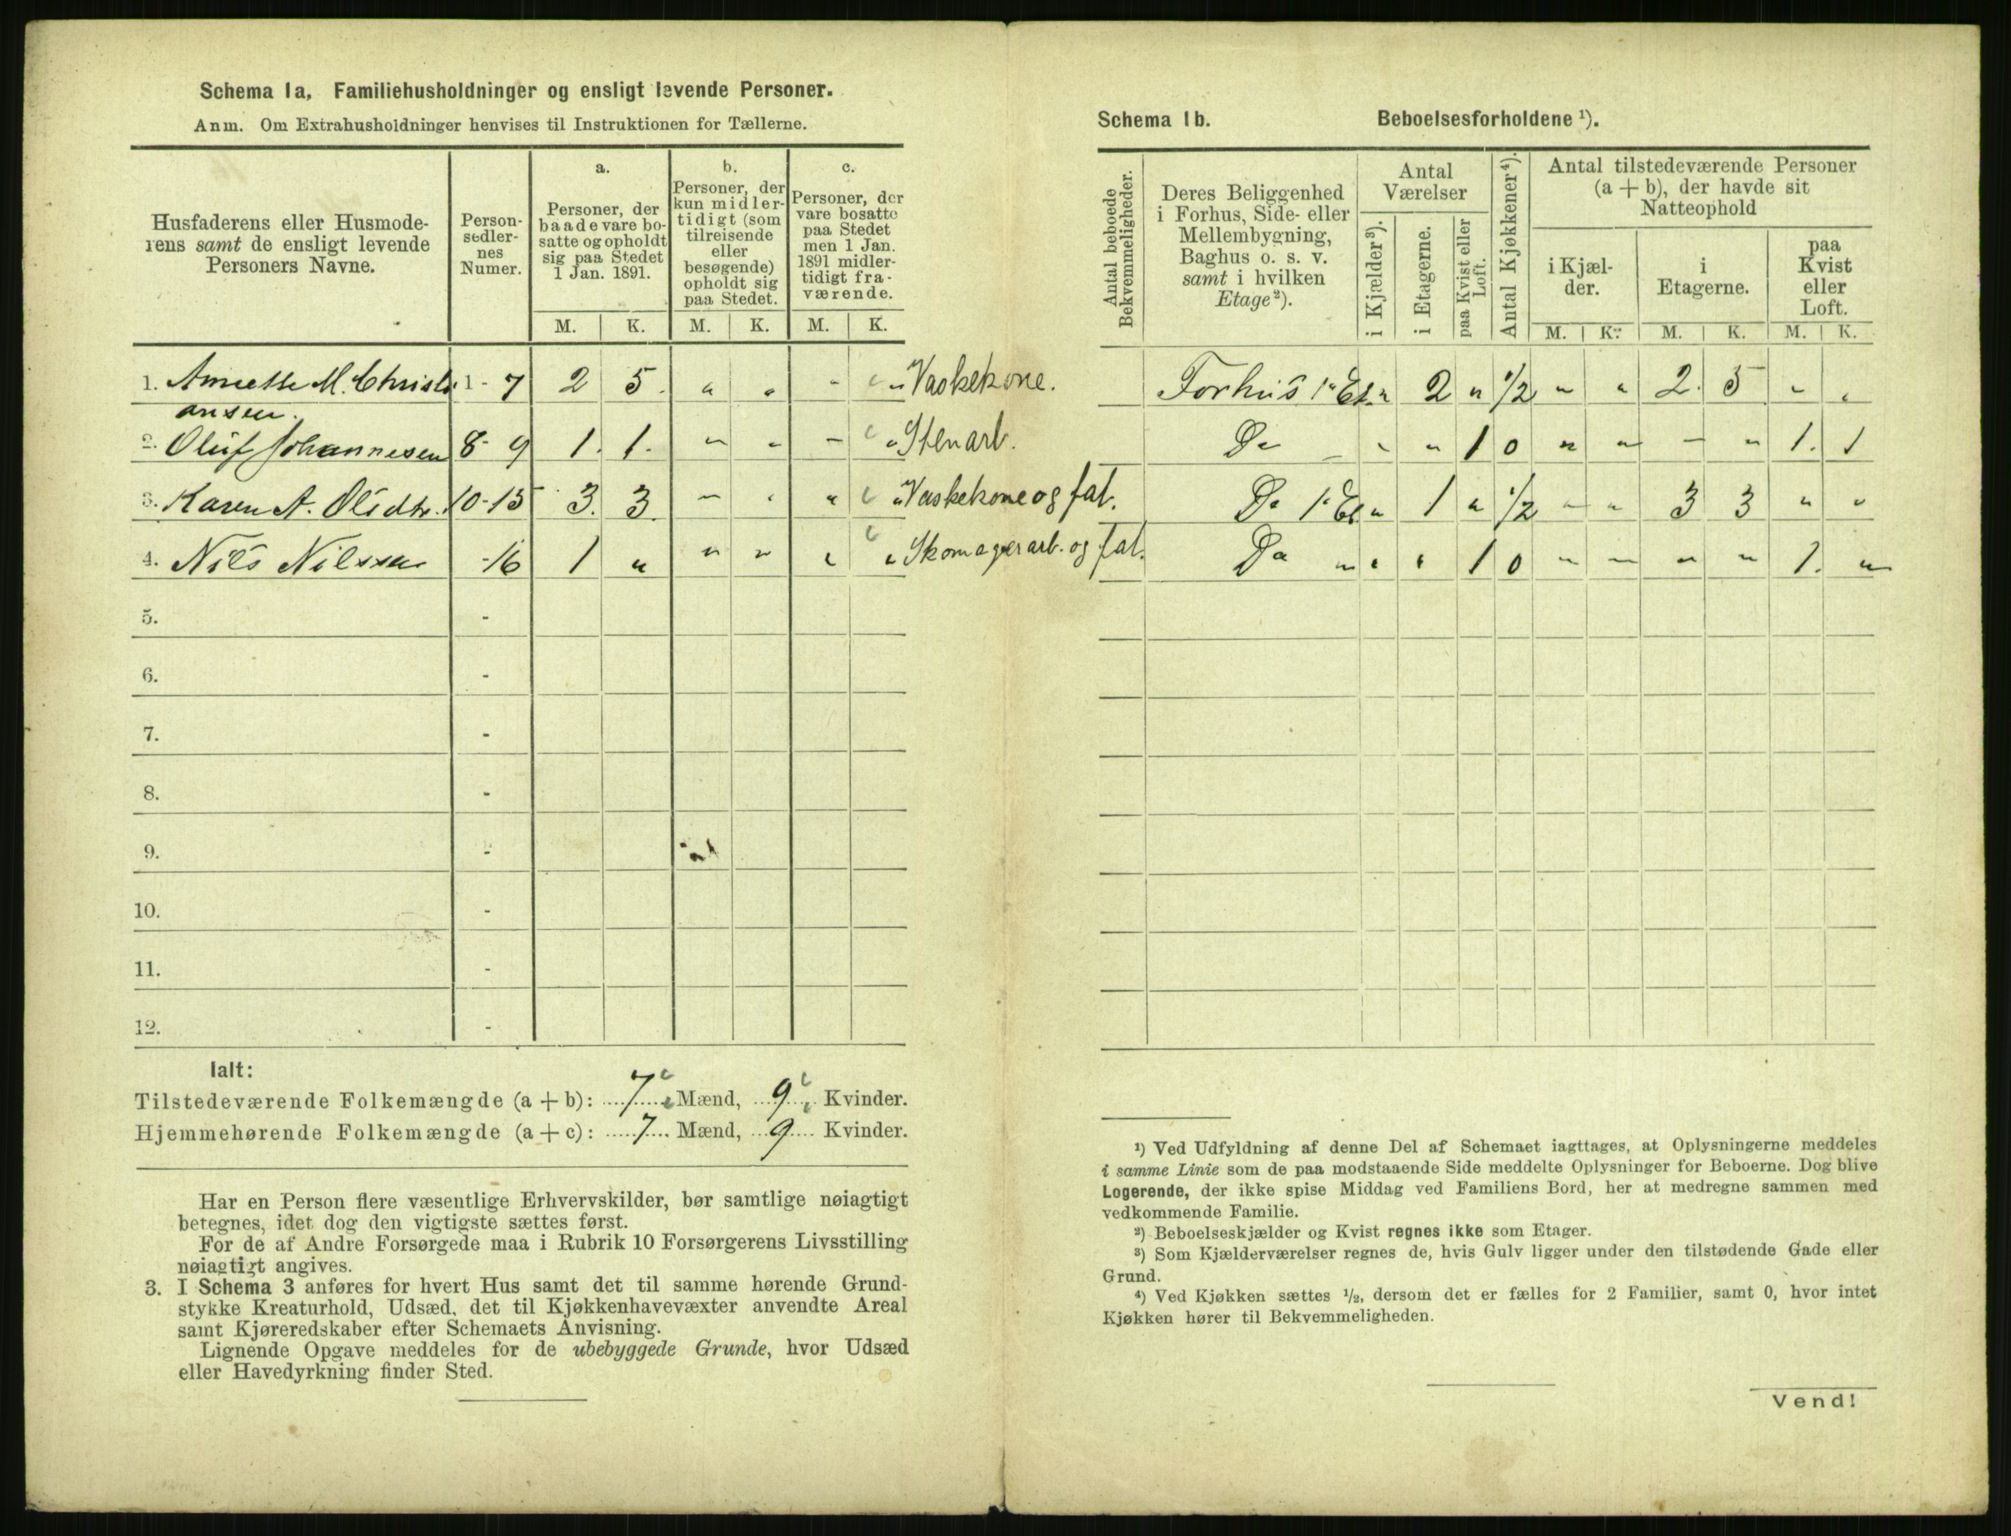 Schema 1a. Familiehusholdninger og ensligt levende Personer.
Anm. Om Extrahusholdninger henvises til Instruktionen for Tællerne.
Husfaderens eller Husmode-
rens samt de ensligt levende
Personers Navne.
Person-
sedler-
nes
Numer.
a.
Personer, der
baade vare bo-
satte og opholdt
sig paa Stedet
1 Jan. 1891.
b.
Personer, der
kun midler-
tidigt (som
tilreisende
eller
besøgende)
opholdt sig
paa Stedet.
c.
Personer, der
vare bosatte
paa Stedet
men 1 Jan.
1891 midler-
tidigt fra-
værende.
M. K. M. K. M. K.
1. Annette M. Christi 1 - 7 2 5. „ „ - „ Vaskekone.
ansen.
2. Oluf Johannesen 8 - 9 1. 1. - „ - „ Stenarb.
3. Karen A. Olsdtr. 10-15 3. 3. - „ „ „ Vaskekone og fat.
4. Nils Nilssen -16 1 „ „ „ „ „ Skomagerarb. og fat.
5. -
6. -
7. -
8. -
9. -
10. -
11. -
12. -
Ialt:
Tilstedeværende Folkemængde (a + b): 7 Mænd, 9 Kvinder.
Hjemmehørende Folkemængde (a + c): 7 Mænd, 9 Kvinder.
Har en Person flere væsentlige Erhvervskilder, bør samtlige nøiagtigt
betegnes, idet dog den vigtigste sættes først.
For de af Andre Forsørgede maa i Rubrik 10 Forsørgerens Livsstilling
nøiagtigt angives.
3. I Schema 3 anføres for hvert Hus samt det til samme hørende Grund-
stykke Kreaturhold, Udsæd, det til Kjøkkenhavevæxter anvendte Areal
samt Kjøreredskaber efter Schemaets Anvisning.
Lignende Opgave meddeles for de ubebyggede Grunde, hvor Udsæd
eller Havedyrkning finder Sted.
Schema 1b. Beboelsesforholdene ¹).
Antal beboede
Bekvemmeligheder.
Deres Beliggenhed
i Forhus, Side- eller
Mellembygning,
Baghus o. s. v.
samt i hvilken
Etage²).
Antal
Værelser
i Kjælder³).
i Etagerne.
paa Kvist eller
Loft.
Antal Kjøkkener⁴).
Antal tilstedeværende Personer
(a + b), der havde sit
Natteophold
i Kjæl-
der.
i
Etagerne.
paa
Kvist
eller
Loft.
M. K. M. K. M. K.
Forhus 1. Et. „ 2 „ 1/2 „ „ 2. 5 „ „
Do - „ „ 1 0 „ „ - „ 1. 1
Do 1. Et. „ 1 „ 1/2 - „ 3 3 „ „
Do „ „ „ 1 0 - - „ „ 1. „
¹) Ved Udfyldning af denne Del af Schemaet iagttages, at Oplysningerne meddeles
i samme Linie som de paa modstaaende Side meddelte Oplysninger for Beboerne. Dog blive
Logerende, der ikke spise Middag ved Familiens Bord, her at medregne sammen med
vedkommende Familie.
²) Beboelseskjælder og Kvist regnes ikke som Etager.
³) Som Kjælderværelser regnes de, hvis Gulv ligger under den tilstødende Gade eller
Grund.
⁴) Ved Kjøkken sættes ½, dersom det er fælles for 2 Familier, samt 0, hvor intet
Kjøkken hører til Bekvemmeligheden.
Vend!